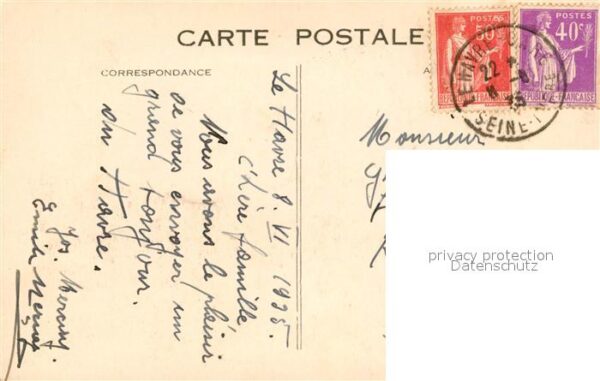 CARTE POSTALE
CORRESPONDANCE
POSTES
50c
RÉPUBLIQUE FRANÇAISE
POSTES
40c
RÉPUBLIQUE FRANÇAISE
LE HAVRE
22
SEINE-INFRE
Le Havre 8 VI 1935.
Chère famille
Nous avons le plaisir
de vous envoyer un
grand bonjour
du Havre.
Jos
Emile
Monsieur
privacy protection
Datenschutz